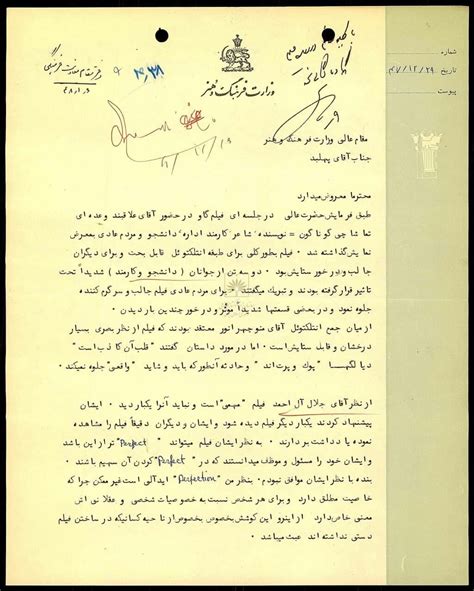 شماره
تاریخ ۴۷/۱۲/۲۹
پیوست
وزارت فرهنگ و هنر
مقام عالی وزارت فرهنگ و هنر
جناب آقای پهلبد
محترما معروض میدارد
طبق فرمایش حضرت عالی در جلسه ای فیلم گاو در حضور آقای علاقبند وعده ای
تماشاچی گوناگون = نویسنده شاعر کارمند اداره دانشجو و مردم عادی بمعرض
نمایش گذاشته شد ۰ فیلم بطور کلی برای طبقه انتلکتوئل قابل بحث و برای دیگران
جالب و در خور ستایش بود ۰ دو سه تن از جوانان ( دانشجو و کارمند ) شدیداً تحت
تاثیر قرار گرفته بودند و تبریک میگفتند ۰ برای مردم عادی فیلم جالب و سرگرم کننده
جلوه نمود و در بعضی قسمتها شدیداً موثر و در خور چندین بار دیدن ۰
از میان جمع انتلکتوئل آقای منوچهر انور معتقد بودند که فیلم از نظر بصری بسیار
درخشان و قابل ستایش است ۰ اما در مورد داستان گفتند " قلب آن کاذب است "
دیالگهـا " پوک و پرت اند " و حادثه آنطور که باید و شاید " واقعی " جلوه نمیکند ۰
از نظر آقای جلال آل احمد فیلم " مهمی" است و نباید آنرا یکبار دید ۰ ایشان
پیشنهاد کردند یکبار دیگر فیلم دیده شود و ایشان و دیگران دقیقاً فیلم را مشاهده
نموده یادداشت بردارند ۰ به نظر ایشان فیلم میتواند "Perfect" تر از این باشد
و ایشان خود را مسئول و موظف میدانستند که در "Perfect" کردن آن سهیم باشند ۰
بنده با نظر ایشان موافق نبودم ۰ بنظر من "Perfection" ایدآلی است غیر ممکن چرا که
خاصیت مطلق دارد و برای هر شخص نسبت به خصوصیات شخصی و عقلانی اش
معنی خاص دارد ۰ از اینرو این کوشش بخصوص بخصوص از ناحیه کسانیکه در ساختن فیلم
دستی نداشته اند عبث میباشد ۰